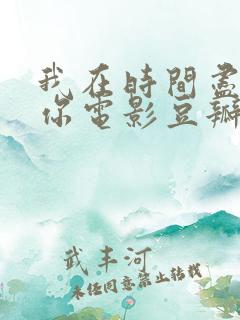 我在時間盡
你電影豆瓣
武丰河
未經同意禁止轉載